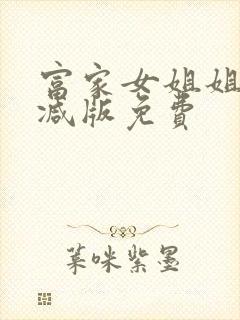 富家女姐姐
减版免费
菓咪紫墨